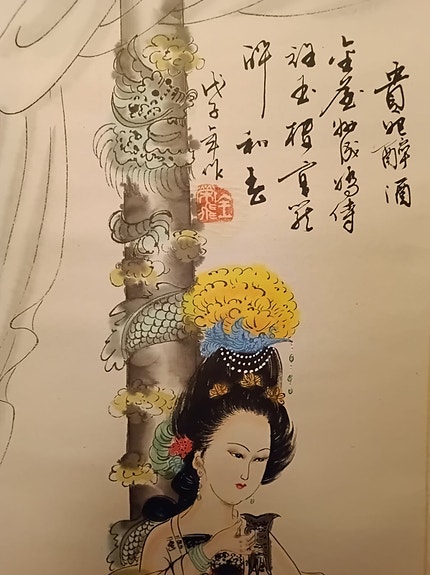 貴妃醉酒
金屋妝成嬌侍
夜玉楼宴罷
醉和春
戊子年作